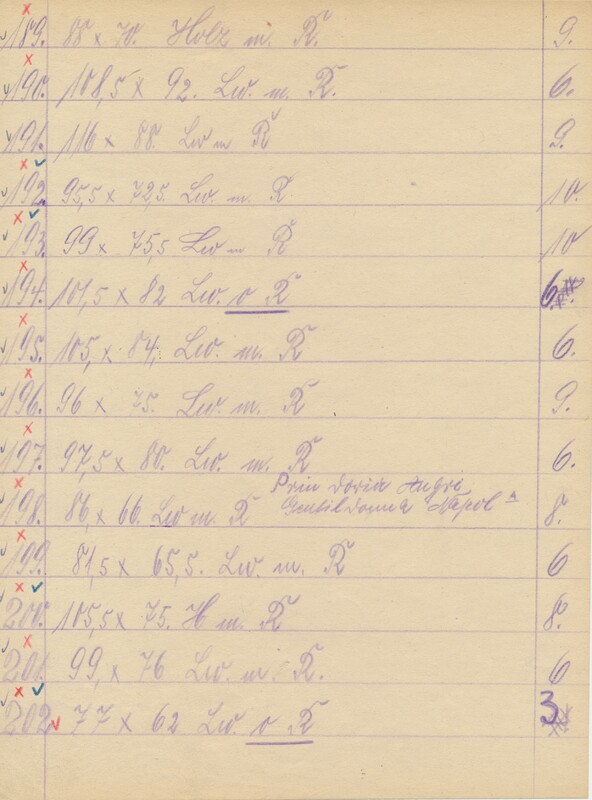 189. 88 x 70. Holz m. R. 9.
190. 108,5 x 92. Lw. m. R. 6.
191. 116 x 88. Lw m R 9.
192. 95,5 x 72,5. Lw. m. R 10.
193. 99 x 75,5 Lw m R 10
194. 101,5 x 82 Lw. o R 6.
195. 105, x 84, Lw. m. R 6.
196. 96 x 75. Lw. m. R 9.
197. 97,5 x 80. Lw. m. R 6.
Prin Doria Angri
198. 86 x 66. Lw m. R Gentildonna Napol 8.
199. 81,5 x 65,5. Lw. m. R 6
200. 105,5 x 75. H m. R 8.
201. 99, x 76 Lw. m. R. 6
202 77 x 62 Lw. o R 3